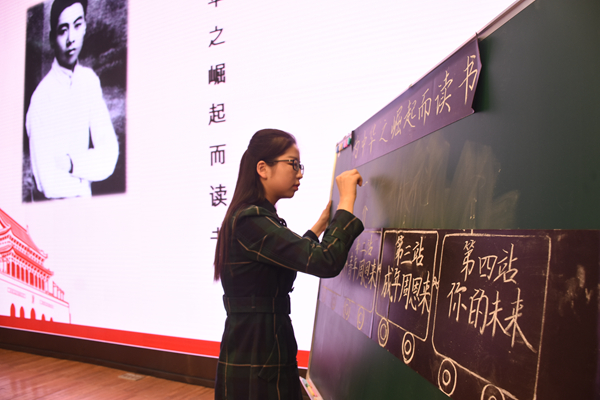 之崛起而读
中华之崛起而读书
站
年周恩来
第三站
成年周恩来
第四站
你的未来